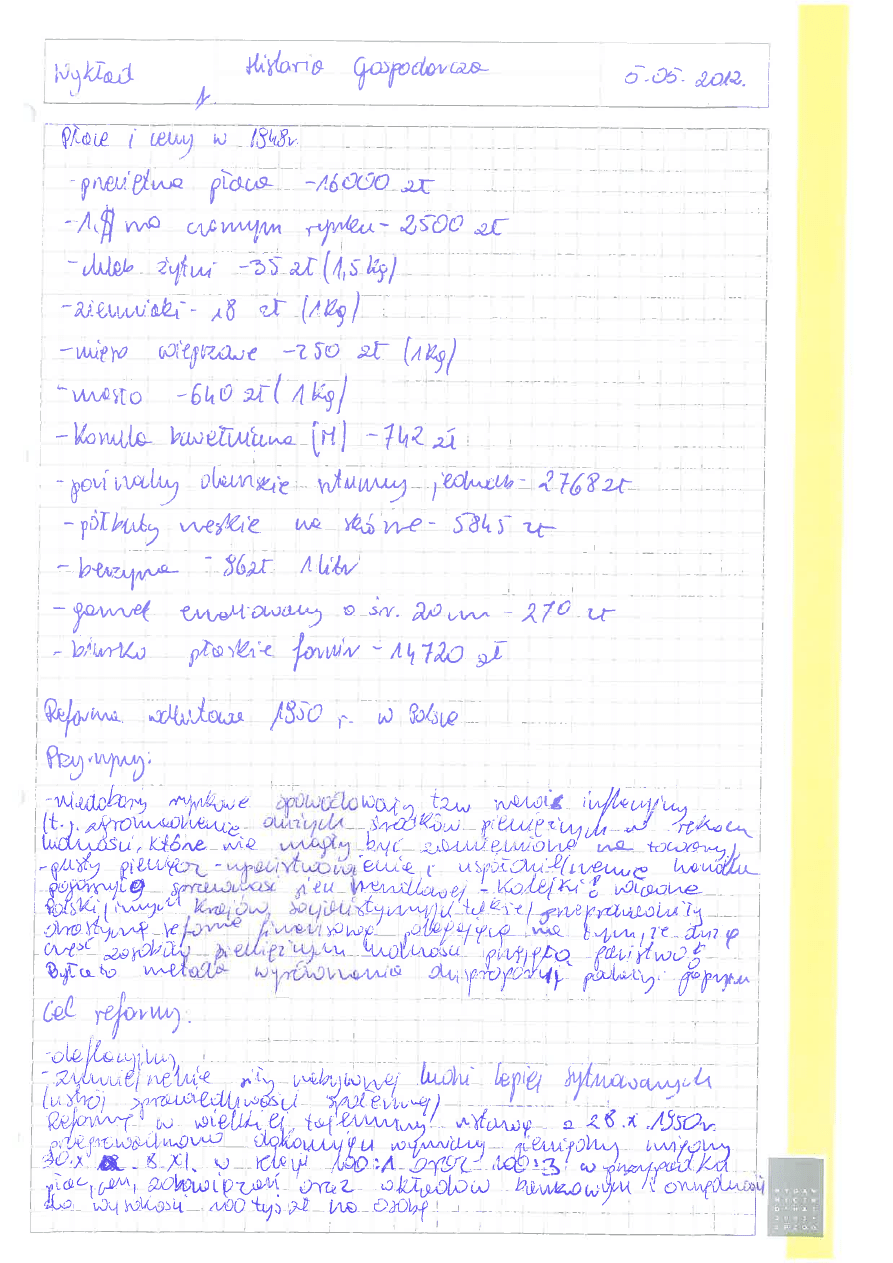 Wykład
Historia Gospodarcza
5.05.2012.
1.
Płace i ceny w 1948r.
-przeciętna płaca -16000 zł
-1.$ na czarnym rynku- 2500 zł
-chleb żytni -35 zł (1,5 kg)
-ziemniaki- 18 zł (1kg)
-mięso wieprzowe -250 zł (1kg)
-masło -640 zł (1kg)
-Koszula bawełniana (M) -742 zł
-pończochy damskie jedwab- 2768 zł
-półbuty męskie na skórze- 5845 zł
-benzyna - 96zł 1 litr
-garnek emaliowany o śr. 20 cm - 270 zł
-biurko płaskie fornir - 14720 zł
Reforma walutowa 1950 r. w Polsce
Przyczyny:
-niedobory rynkowe spowodowały tzw nawis inflacyjny
(t.j. zgromadzenie dużych środków pieniężnych w rękach
ludności, które nie mogły być zamienione na towary)
-pusty pieniądz -upaństwowienie i uspółdzielnienie handlu
pogorszyło sprawność sieci handlowej - Kolejki! władze
Polski i innych Krajów socjalistycznych przeprowadziły
drastyczną reformę finansową polegającą na tym, że dużą
część zasobów pieniężnych ludności przejęło państwo
Była to metoda wyrównania dysproporcji
Cel reformy:
-deflacyjny
-zmniejszenie siły nabywczej ludzi lepiej sytuowanych
(ustrój sprawiedliwości społecznej)
Reformę w wielkiej tajemnicy ustawą z 28.X.1950r.
przeprowadzono dokonując wymiany pieniędzy
30.X 8.XI. w relacji 100:1 oraz 100:3 w przypadku
płac, cen, zobowiązań oraz wkładów bankowych i oszczędności
do wysokości 100 tyś zł na osobę